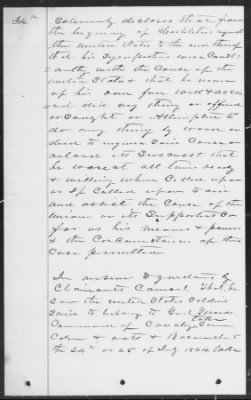 Solemnly declares that from
the beginning of Hostilities against
the United States to the end thereof
that his Sympathies were Constantly
with the Cause of the
United States that he never
of his own free will & accord
did any thing or offered
or Sought or Attempted to
do any thing by word or
deed to injure Said Cause or
retard its Success & that
he was at all times ready
& willing when Called upon
or if Called upon to aid
and assist the Cause of the
Union or its Supporters So
far as his means & power
& the Circumstances of the
Case permitted
In answer to questions by
Claimants Counsel That he
Saw the United States Soldiers
Said to belong to Genl
Command of Cavalry
Corn & oats & Bacon
the 24th or 25 of July 1864